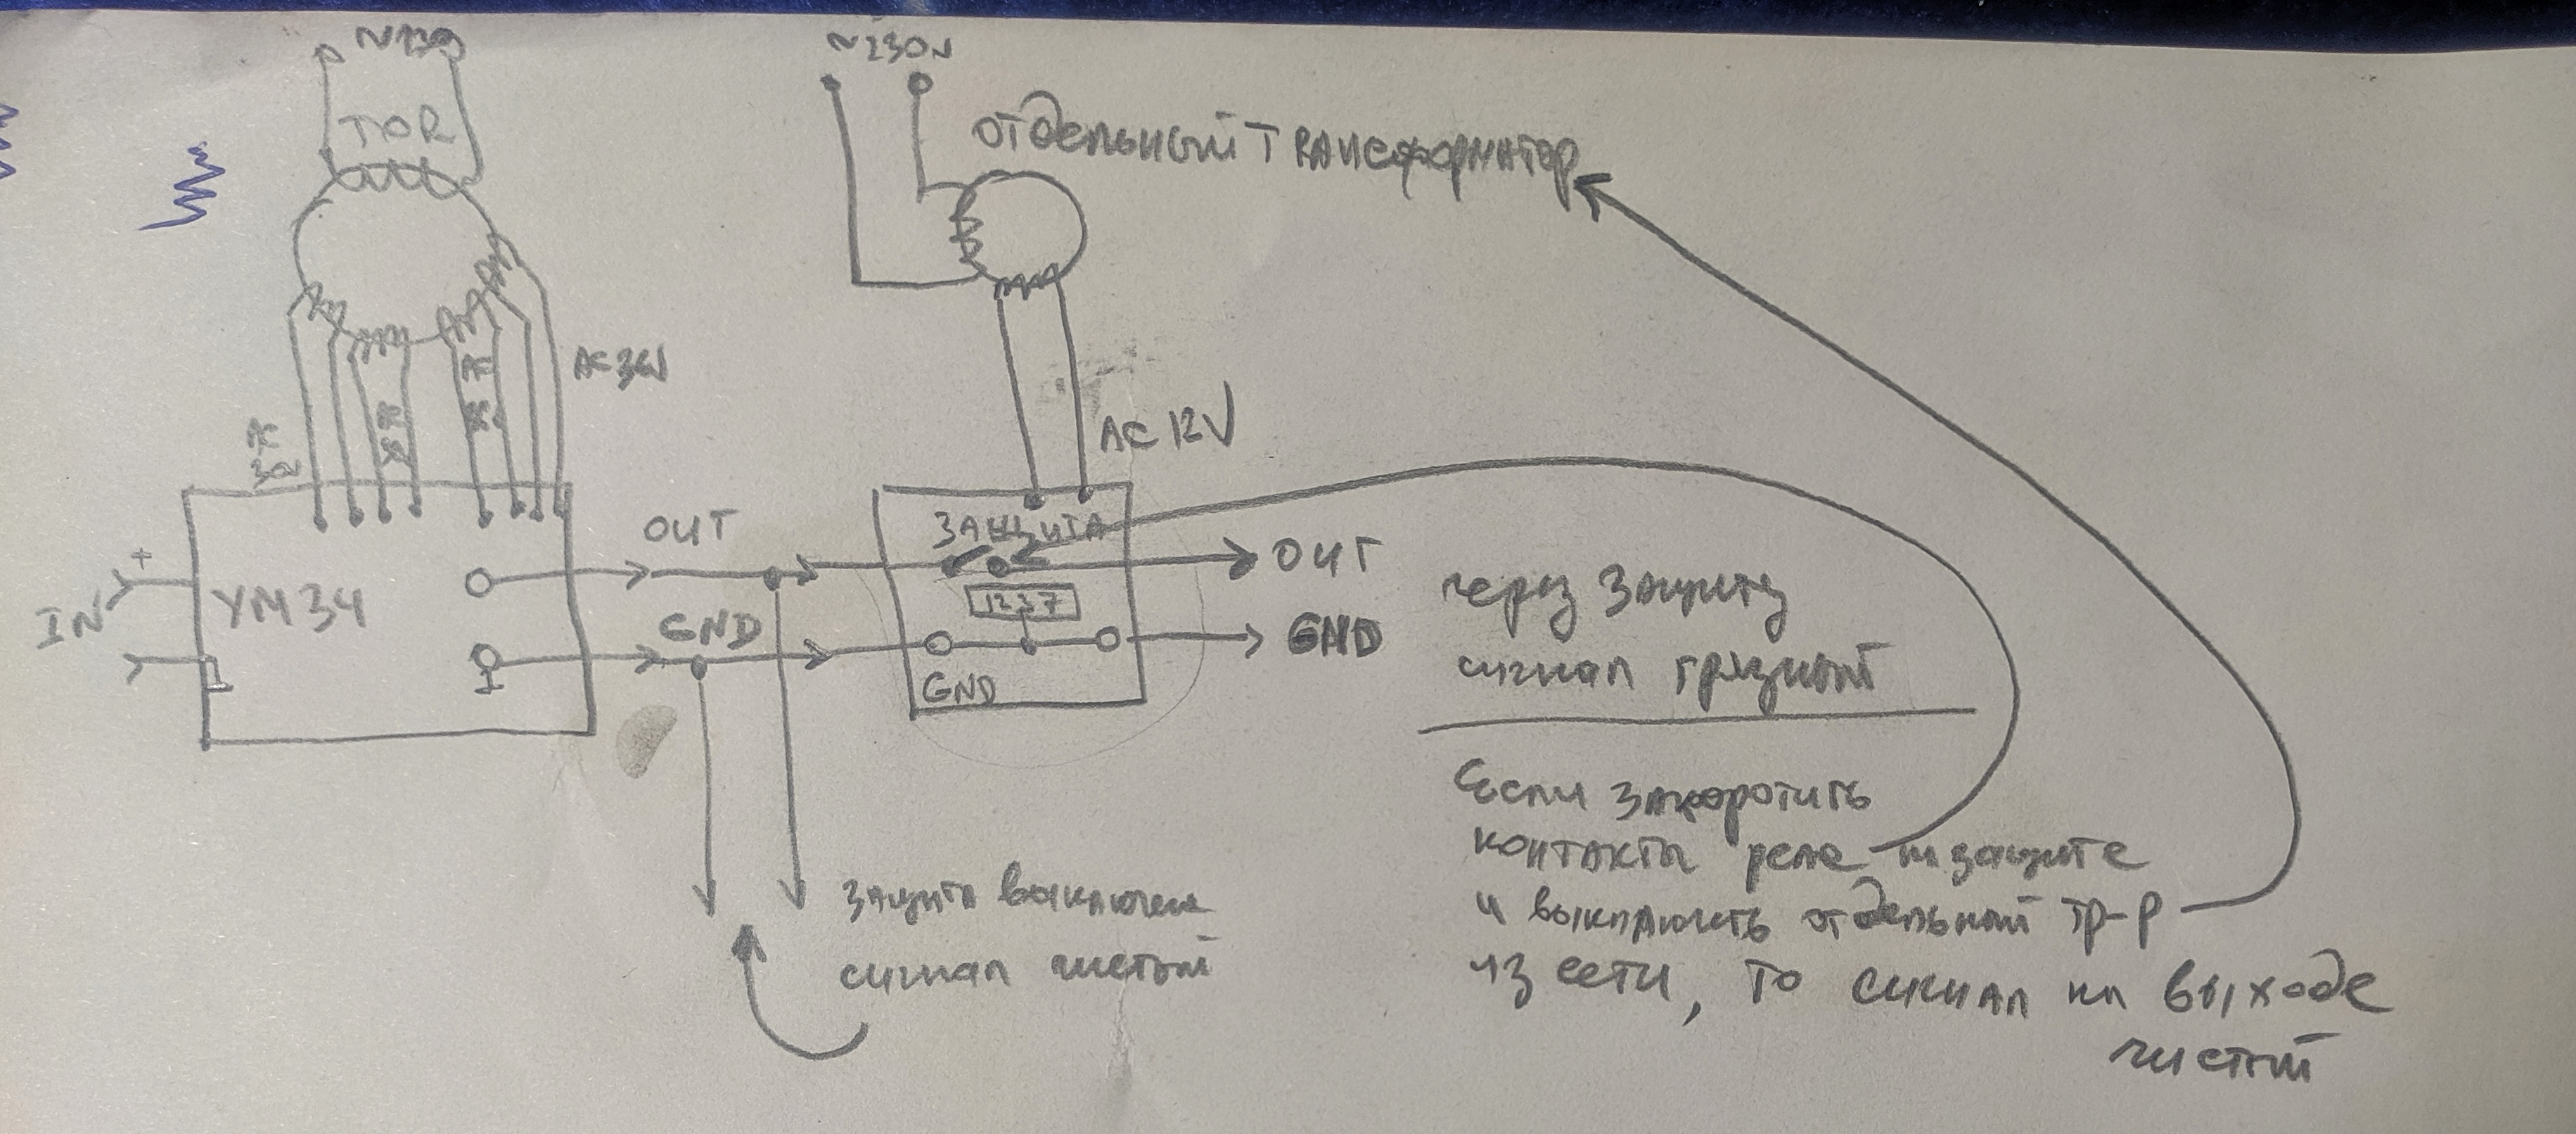 ~230
~230V
TOR
ОТДЕЛЬНЫЙ ТRАНСФОРМАТОР
AC 36V
AC 12V
OUT
ЗАЩИТА
OUT
+
IN
УМ34
1237
GND
GND
GND
через Защиту
сигнал грязный
Если закоротить
контакты реле на защите
и выключить отдельный тр-р
из сети, то сигнал на выходе
чистый
Защита выключена
сигнал чистый